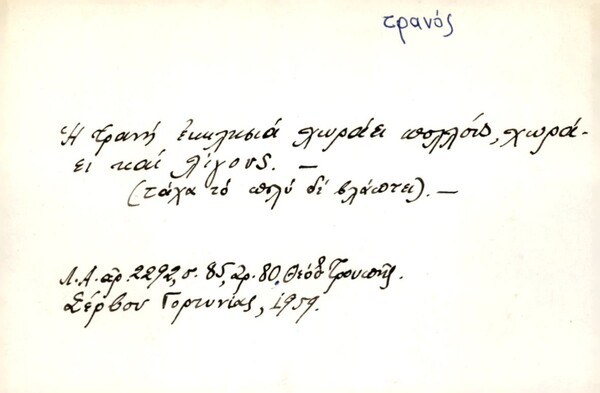 τρανός
Ἡ τρανή ἐκκλησιά χωράει πολλούς, χωρά-
ει καί λίγους. —
(τάχα τό πολύ δέ βλάπτει). —
Λ.Α. ἀρ. 2292, σ. 85, ἀρ. 80, Θεόδ. Τρουπῆς.
Σέρβου Γορτυνίας, 1959.